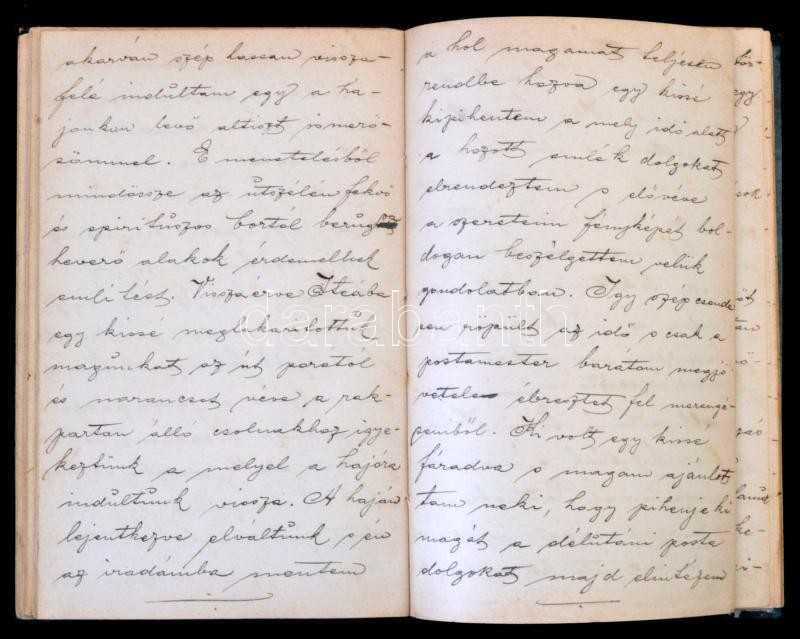 akarván szép lassan vissza-
felé indultam egy a ha-
jonkon levő altiszt ismerő-
sömmel. E menetelésből
mindössze az útszélén fekvő
és spirituszos bortol berugva
heverő alakok érdemelhek
emlitést. Visszaérve Iteába
egy kissé megtakaritottuk
magunkat az út poratól
és narancsot véve a rak-
partan álló csolnakhoz igye-
keztünk a melyel a hajóra
indultunk vissza. A haján
lejentkezve elváltunk s én
az iradámba mentem
a hol magamat teljesen
rendbe hozva egy kissé
kipihentem a mely idő alatt
a hozott emlék dolgokat
elrendeztem s elővéve
a szereteim fényképét bol-
dogan beszélgettem velük
gondolatban. Igy szép csende
sen röpült az idő s csak a
postamester barátom megjö
vetele ébresztet fel merengé-
semből. Ki volt egy kissé
fáradva s magam ajánlot
tam neki, hogy pihenje ki
magát a délutani posta
dolgokat majd elintézem
darabanth